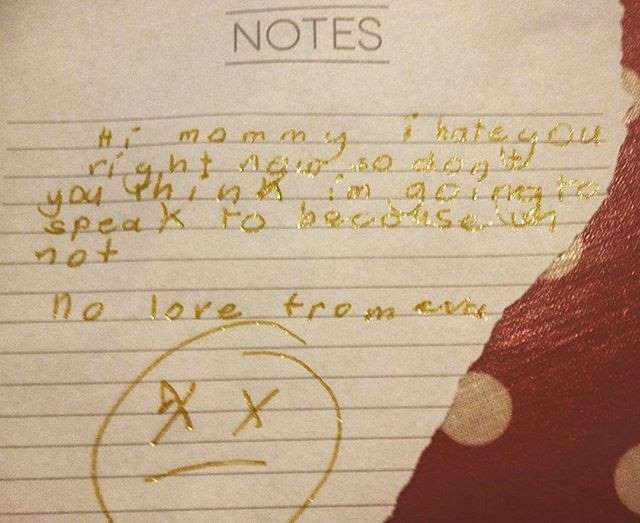 NOTES
Hi mommy i hate you
right now so don't
you think i'm going to
speak to because un
not
No love from